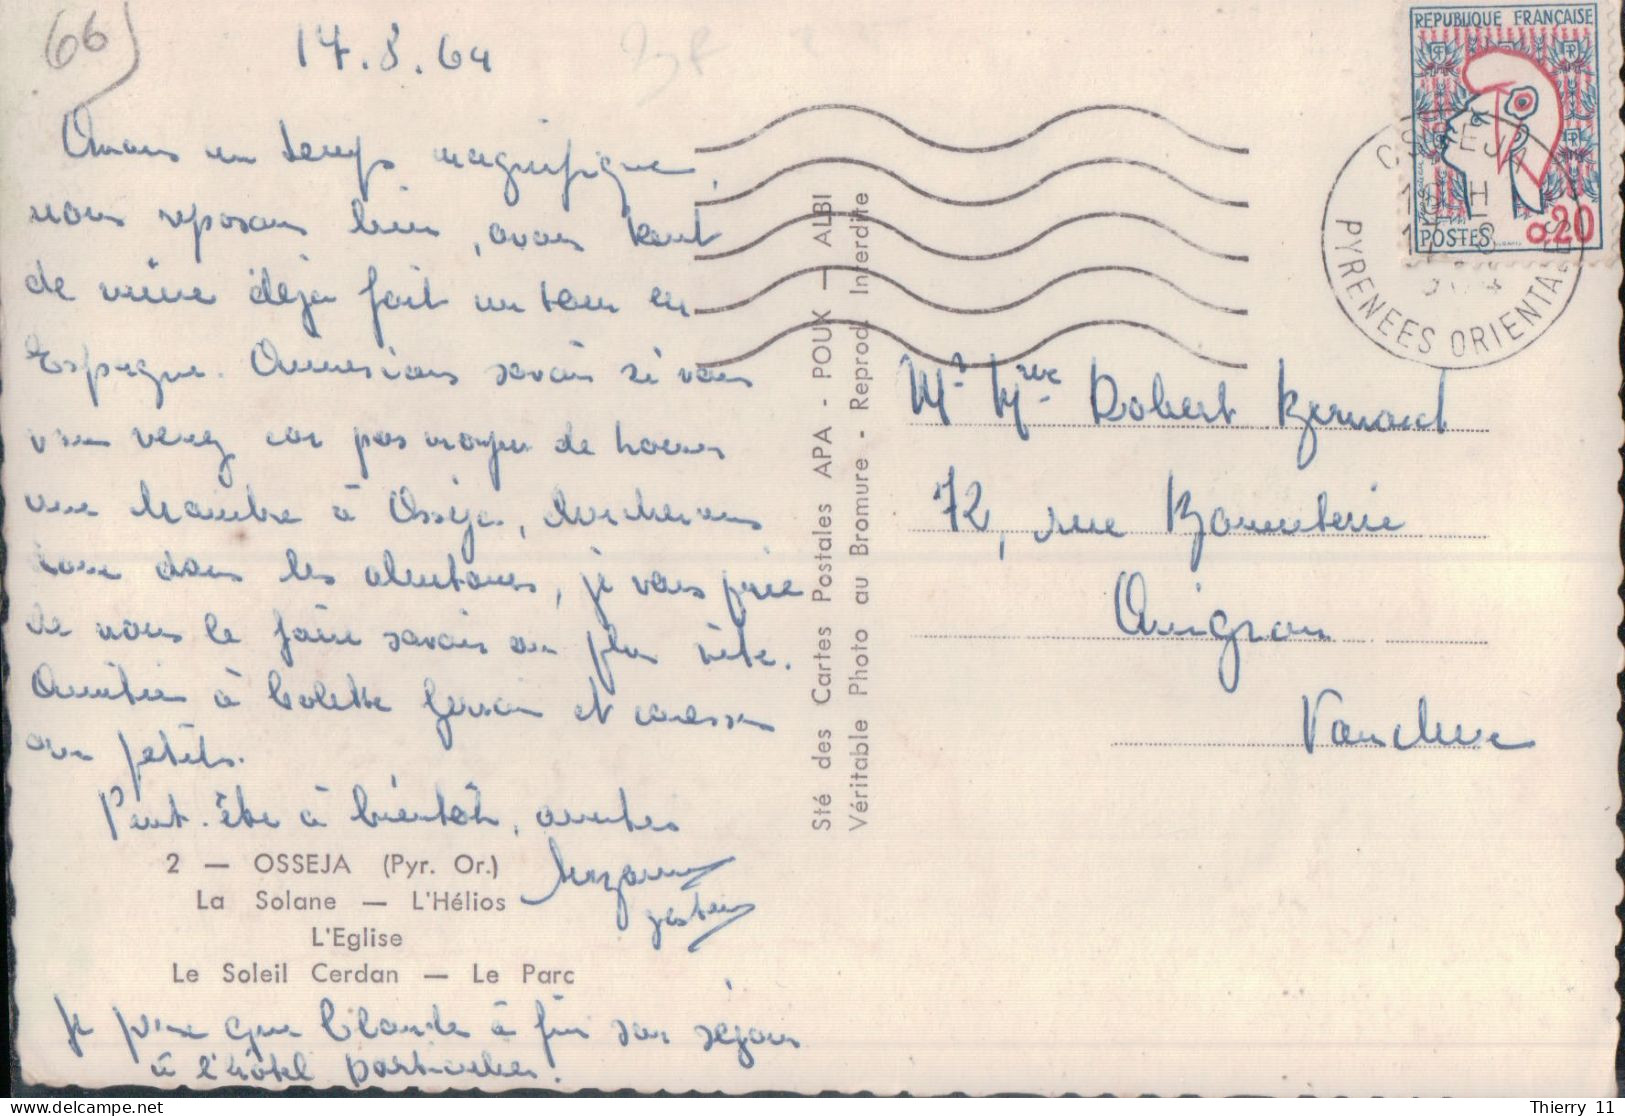 66
17.8.64
Avons un temps magnifique,
nous reposons bien, avons tout
de même déjà fait un tour en
Espagne. Aimerions savoir si vous
venez car pas moyen de trouver
une chambre à Osseja, chercherons
donc dans les alentours, je vous prie
de nous le faire savoir au plus vite.
Amitiés à Colette Germain et caresses
aux petits.
Peut-être à bientôt, amitiés
Suzanne
2 — OSSEJA (Pyr. Or.)
La Solane — L'Hélios
L'Eglise
Le Soleil Cerdan — Le Parc
Je pense que Claude à fini son séjour
à l'hôtel particulier.
Sté des Cartes Postales APA - POUX — ALBI
Véritable Photo au Bromure - Reprod. Interdite
REPUBLIQUE FRANÇAISE
POSTES 0,20
OSSEJA
18 H
17-8
1964
PYRENEES ORIENTALES
Mr Mme Robert Bernard
72, rue Bonneterie
Avignon
Vaucluse
Thierry 11